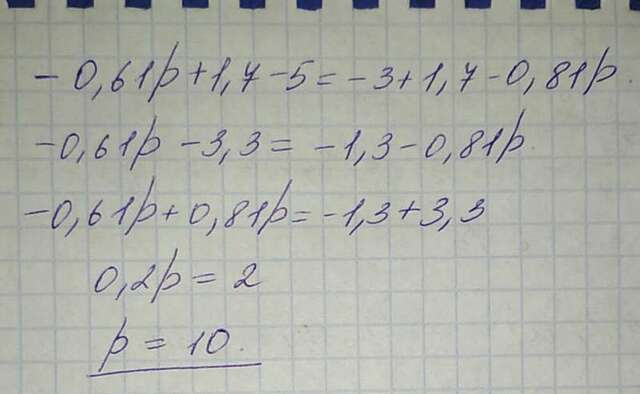 - 0,61p + 1,7 - 5 = - 3 + 1,7 - 0,81p.
- 0,61p - 3,3 = - 1,3 - 0,81p.
- 0,61p + 0,81p = - 1,3 + 3,3
0,2p = 2
p = 10.